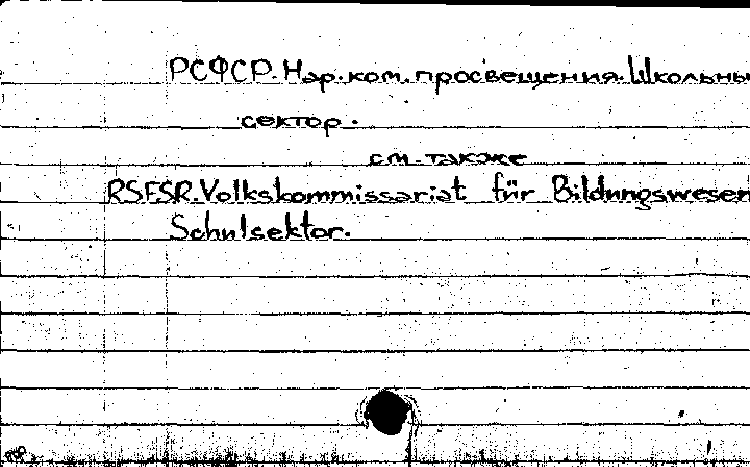 РСФСР. Нар. ком. просвещения. Школьны
сектор.
см. также
RSFSR. Volkskommissariat für Bildungswesen
Schulsektor.